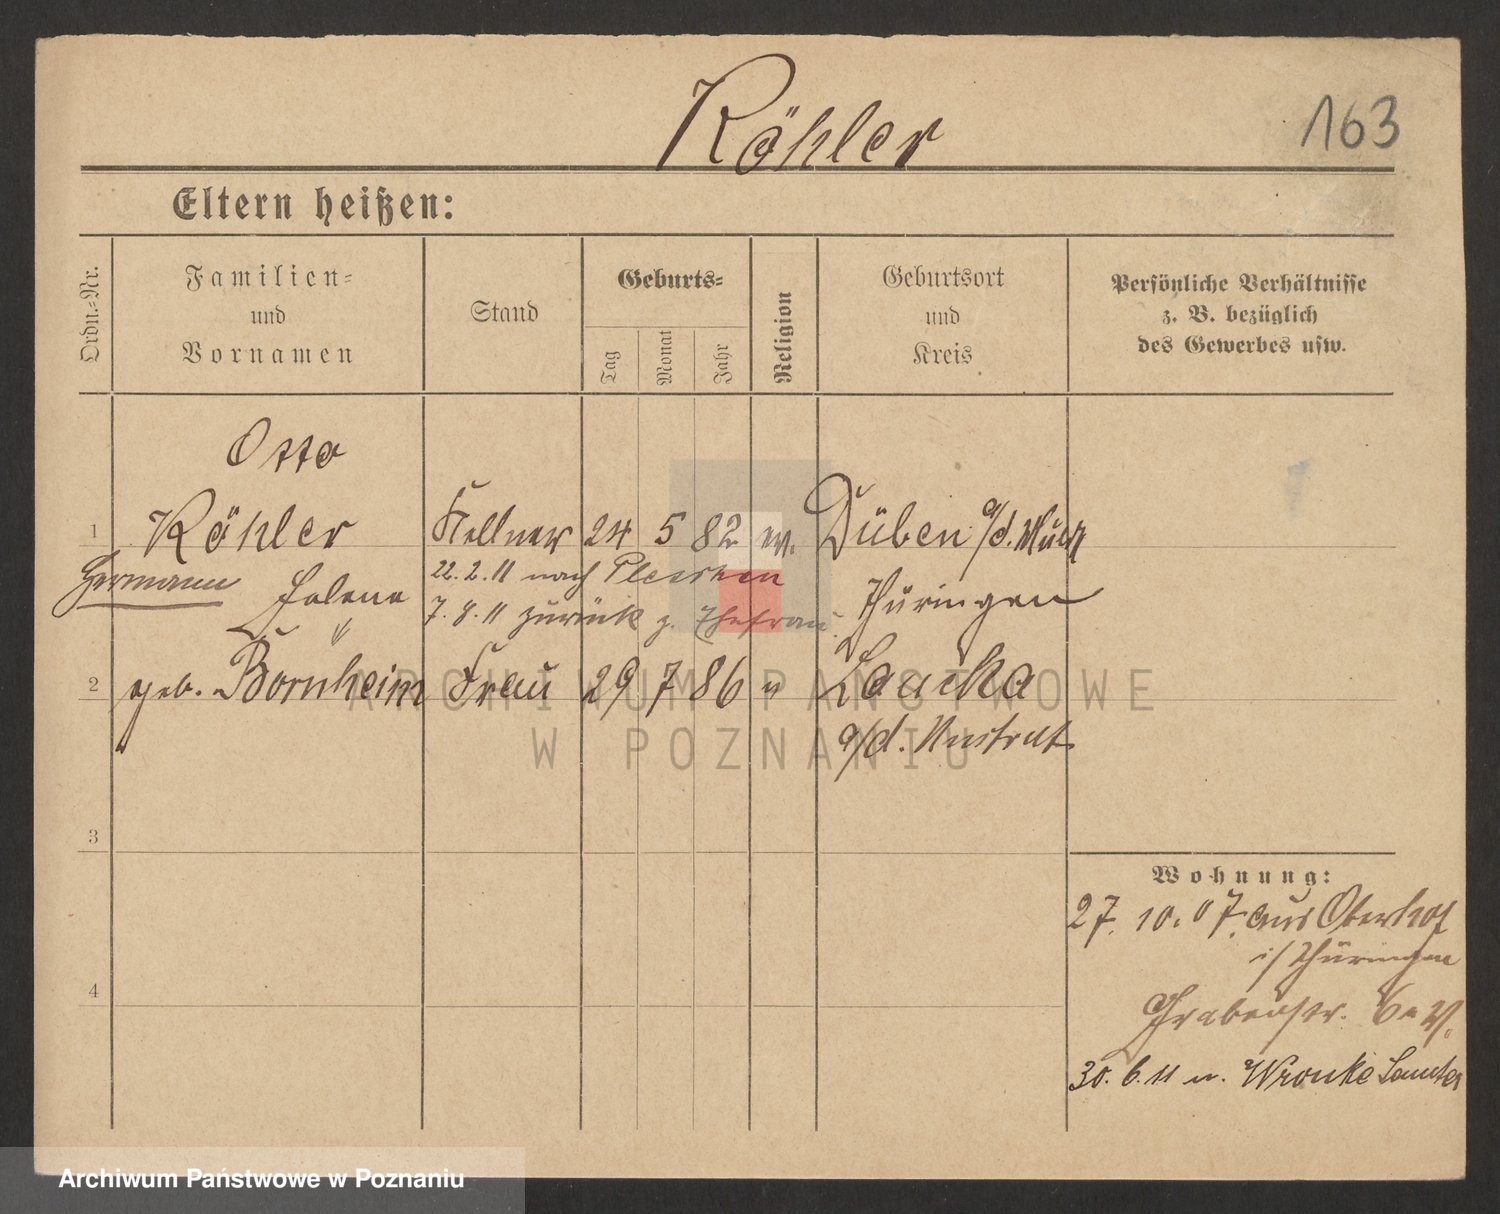 Köhler
163
Eltern heißen:
Ordn.-Nr.
Familien-
und
Vornamen
Stand
Geburts-
Tag
Monat
Jahr
Religion
Geburtsort
und
Kreis
Persönliche Verhältnisse
z. B. bezüglich
des Gewerbes usw.
Otto
1 Köhler Kellner 24 5 82 ev. Düben a/d.
Hermann
22.2.11 nach Pleschen
Helene
7.8.11 zurück z. Ehefrau
Thüringen
2 geb. Bornheim Frau 29 7 86 " Laucha
a/d. Unstrut
3
4
Wohnung:
27. 10. 07. aus Oberhof
i/Thüringen
Grabenstr.
30. 6. 11 n. Wronke Samter
ARCHIWUM PAŃSTWOWE
W POZNANIU
Archiwum Państwowe w Poznaniu